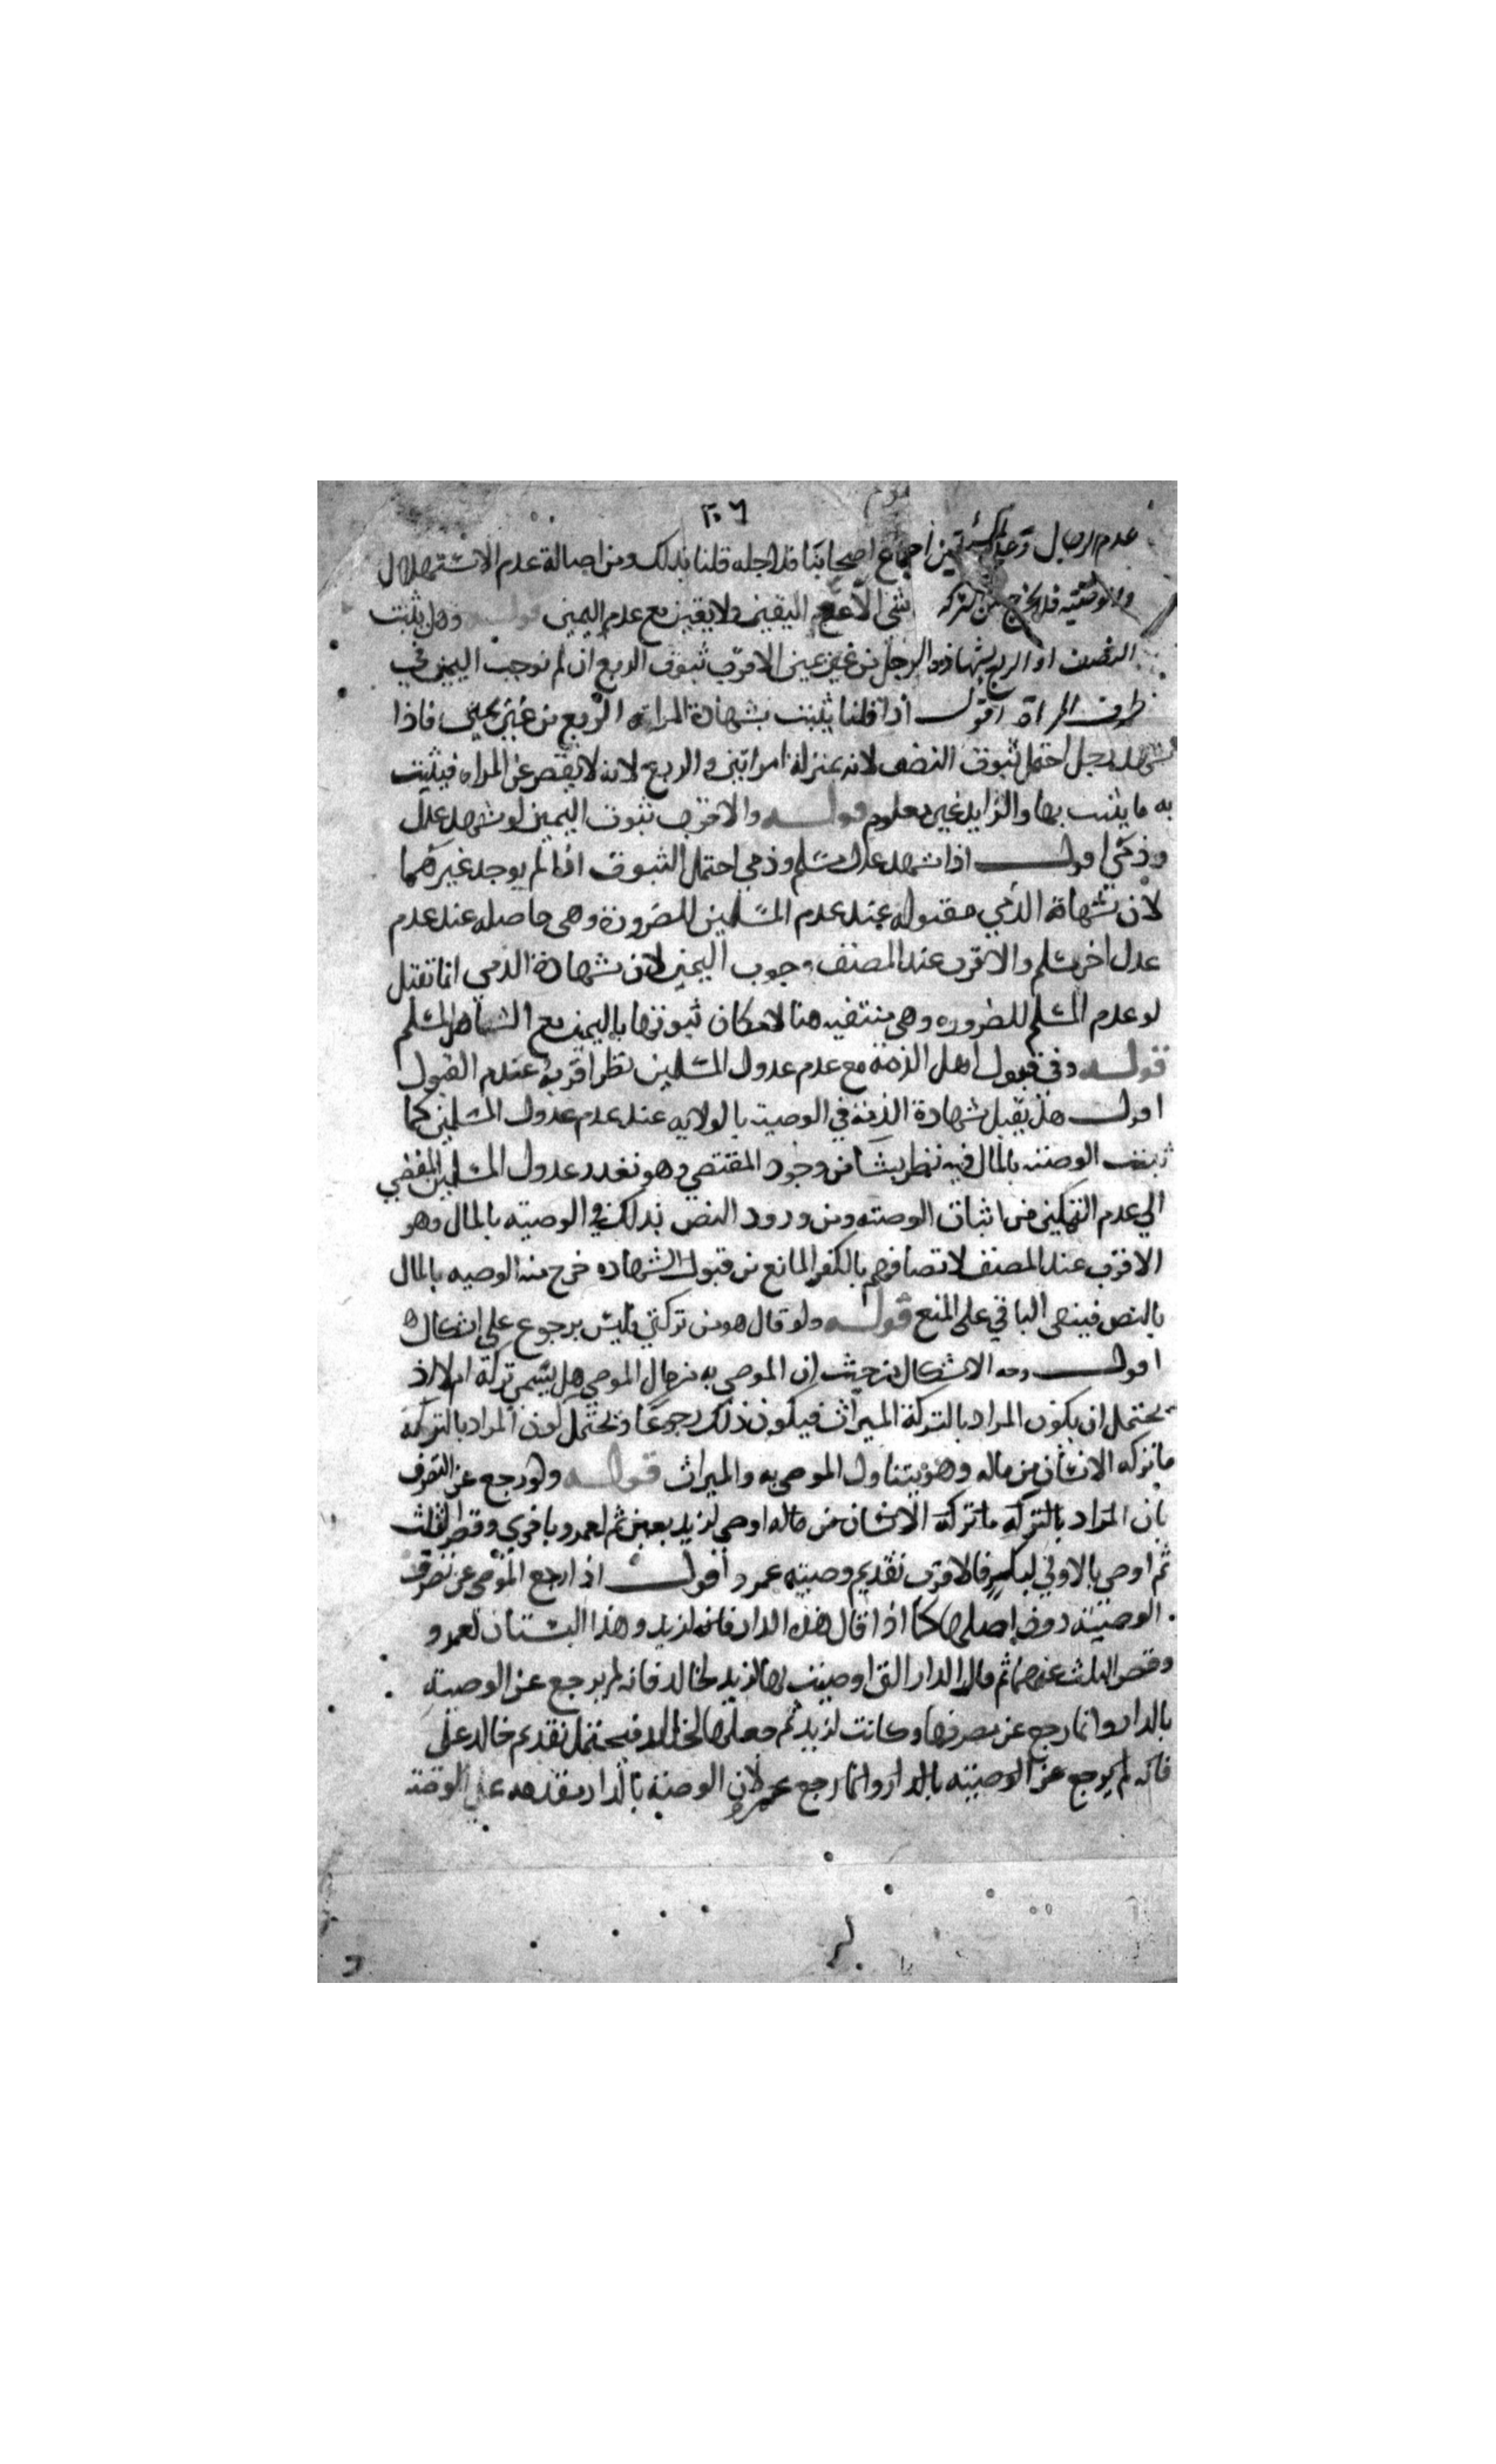 ٢٠٦
عدم الرجال وعند المسئلتين اجماع اصحابنا فلاجله قلنا بذلك ومن اصالة عدم الاستهلال
والوصية فلا يخرج من التركة شى الا مع اليقين ولا يقين مع عدم اليمين قوله وهل يثبت
النصف او الربع بشهادة الرجل من غير يمين الاقرب ثبوت الربع ان لم نوجب اليمين في
طرف المراة اقول اذا قلنا يثبت بشهادة المراة الربع من غير يمين فاذا
شهد رجل احتمل ثبوت النصف لانه بمنزلة امراتين والربع لانه لا يقصر عن المراه فيثبت
به ما يثبت بها والزايد غير معلوم قوله والاقرب ثبوت اليمين لو شهد عدل
وذمي اقول اذا شهد عدل مسلم وذمي احتمل الثبوت اذا لم يوجد غيرهما
لان شهادة الذمي مقبوله عند عدم المسلمين للضرورة وهى حاصله عند عدم
عدل اخر مسلم والاقرب عند المصنف وجوب اليمين لان شهادة الذمي انما تقبل
لو عدم المسلم للضروره وهى منتفيه هنا لامكان ثبوتها باليمين مع الشاهد المسلم
قوله وفي قبول اهل الذمة مع عدم عدول المسلمين نظر اقربه عدم القبول
اقول هل يقبل شهادة الذمة في الوصية بالولايه عند عدم عدول المسلمين كما
تثبت الوصية بالمال فيه نظر ينشا من وجود المقتضي وهو تعذر عدول المسلمين المفضي
الي عدم التمكين من اثبات الوصته ومن ورود النص بذلك في الوصيته بالمال وهو
الاقرب عند المصنف لاتصافهم بالكفر المانع من قبول الشهاده خرج منه الوصيه بالمال
بالنص فيبقى الباقي على المنع قوله ولو قال هو من تركتي فليس برجوع علي اشكال
اقول وجه الاشكال من حيث ان الموصى به من مال الموصي هل يسمى تركة ام لا اذ
يحتمل ان يكون المراد بالتركة الميراث فيكون ذلك رجوعا ويحتمل كون المراد بالتركة
ما تركه الانسان من ماله وهو يتناول الموصى به والميراث قوله ولو رجع عن التصرف
بان المراد بالتركه ما تركه الانسان من ماله اوصي لزيد بعين ثم لعمرو باخري وقصر الثلث
ثم اوصي بالاولي لبكر فالاقرب تقديم وصيته عمرو اقول اذا رجع الموصى عن تصرف
الوصيته دون اصلها كما اذا قال هذه الدار فانه لزيد وهذا البستان لعمرو
وقصر الثلث عنهما ثم قال الدار التي اوصيت بها لزيد لخالد فانه لم يرجع عن الوصيته
بالدار وانما رجع عن مصرفها وكانت لزيد ثم جعلها لخالد فيحتمل تقديم خالد على
فانه لم يرجع عن الوصيته بالدار وانما رجع عمرو لان الوصية بالدار مقدمه علي الوصية